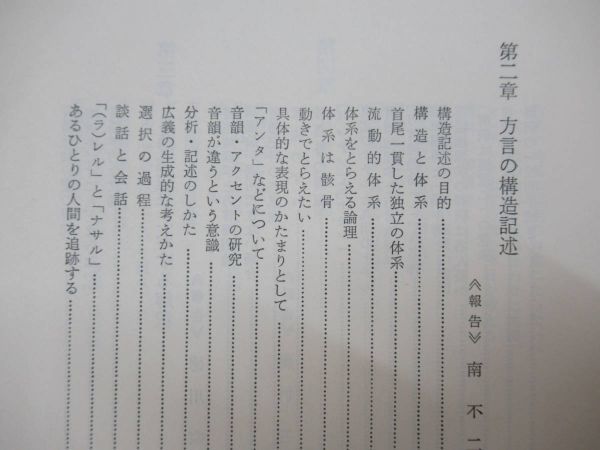 第二章　方言の構造記述
《報告》南不二
構造記述の目的
構造と体系
首尾一貫した独立の体系
流動的体系
体系をとらえる論理
体系は骸骨
動きでとらえたい
具体的な表現のかたまりとして
「アンタ」などについて
音韻・アクセントの研究
音韻が違うという意識
分析・記述のしかた
広義の生成的な考えかた
選択の過程
談話と会話
「(ラ)レル」と「ナサル」
あるひとりの人間を追跡する